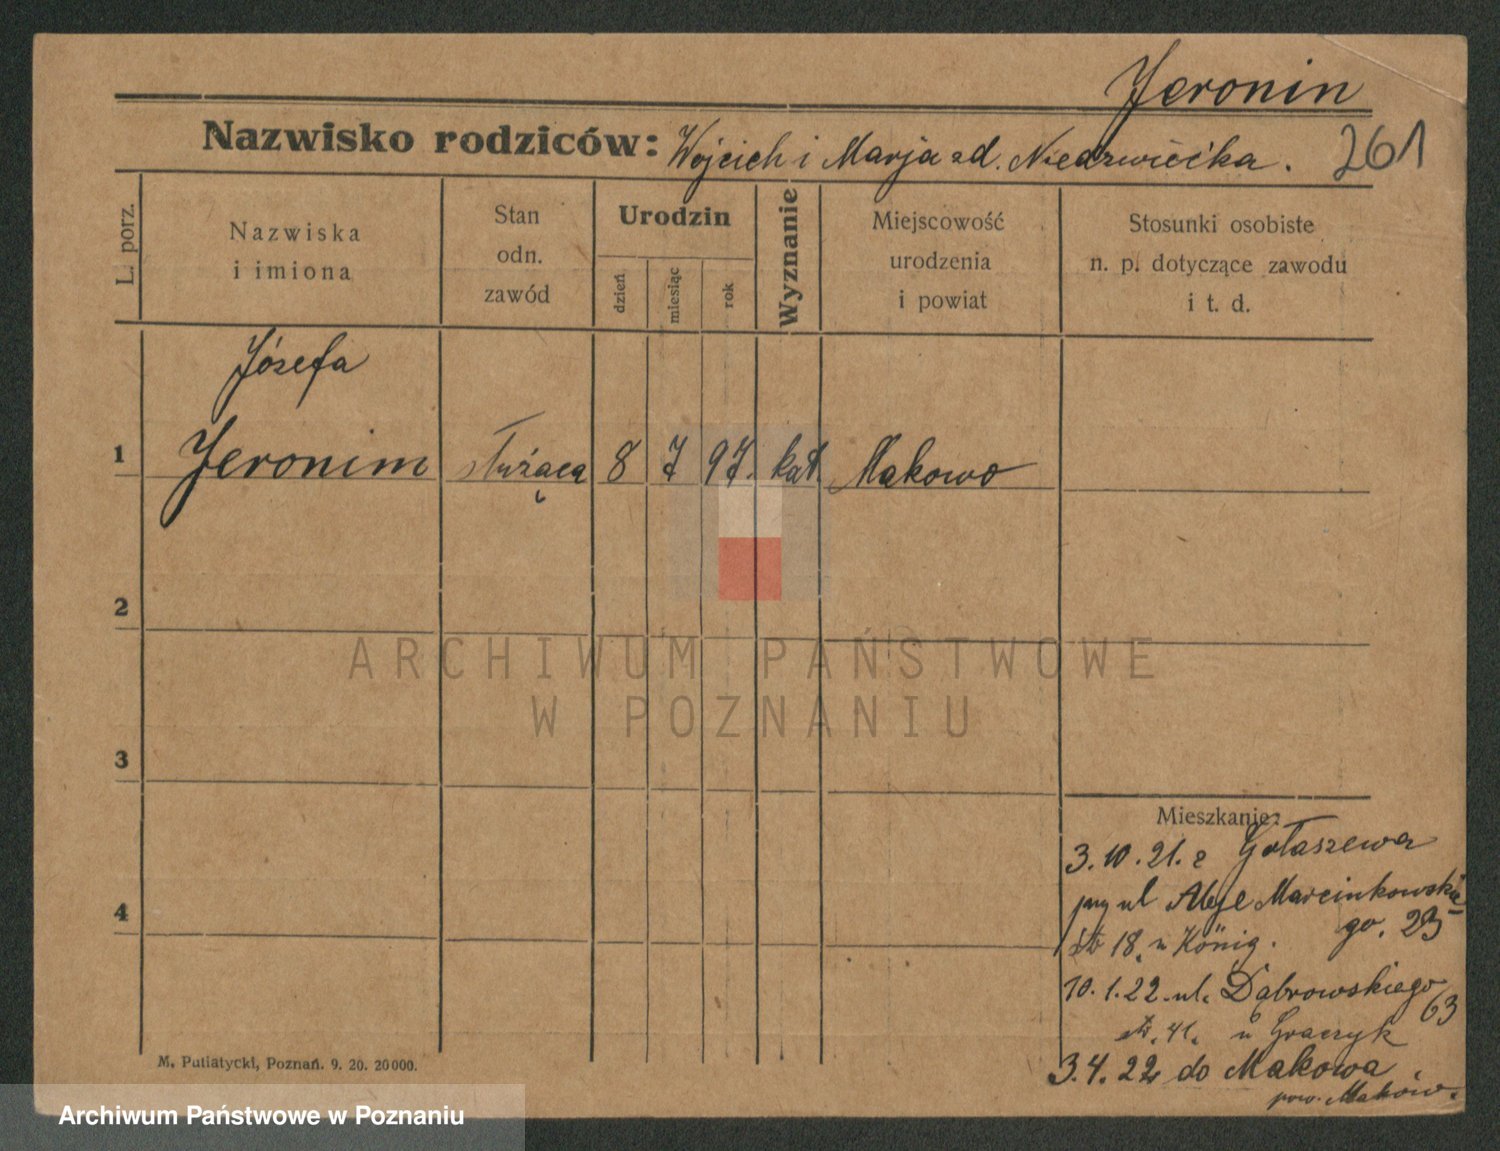 Jeronin
Nazwisko rodziców: Wojciech i Marja zd. Niedzwiećka.
261
L. porz.
Nazwiska
i imiona
Stan
odn.
zawód
Urodzin
dzień
miesiąc
rok
Wyznanie
Miejscowość
urodzenia
i powiat
Stosunki osobiste
n. p. dotyczące zawodu
i t. d.
Józefa
1 Jeronim służąca 8 7 97. kat. Makowo
2
3
4
ARCHIWUM PAŃSTWOWE
W POZNANIU
Mieszkanie:
3.10.21. z Gołaszewa
przy ul Aleje Marcinkowskie-
go. 23
18. u König.
10.1.22. ul. Dąbrowskiego
63
41. u Graczyk
3.4.22 do Makowa
pow. Maków.
M. Putiatycki, Poznań. 9. 20. 20000.
Archiwum Państwowe w Poznaniu